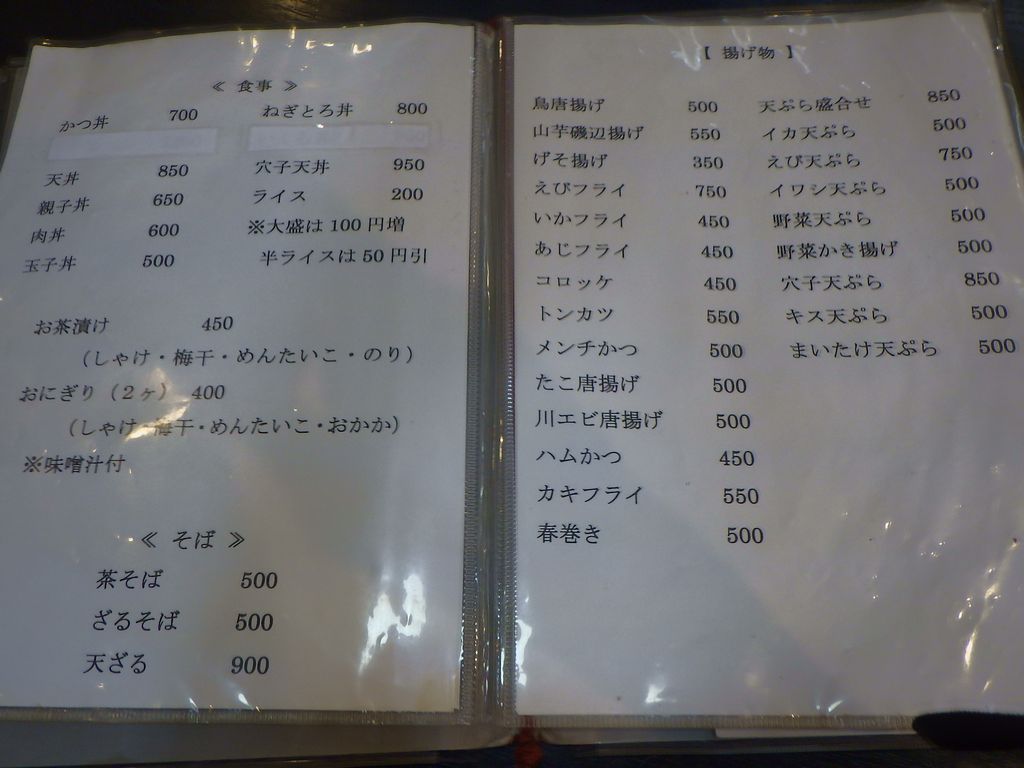 ≪ 食事 ≫
かつ丼 700 ねぎとろ丼 800
天丼 850 穴子天丼 950
親子丼 650 ライス 200
肉丼 600 ※大盛は 100 円増
玉子丼 500 半ライスは 50 円引
お茶漬け 450
（しゃけ・梅干・めんたいこ・のり）
おにぎり（2ヶ） 400
（しゃけ・梅干・めんたいこ・おかか）
※味噌汁付
≪ そば ≫
茶そば 500
ざるそば 500
天ざる 900
【 揚げ物 】
鳥唐揚げ 500 天ぷら盛合せ 850
山芋磯辺揚げ 550 イカ天ぷら 500
げそ揚げ 350 えび天ぷら 750
えびフライ 750 イワシ天ぷら 500
いかフライ 450 野菜天ぷら 500
あじフライ 450 野菜かき揚げ 500
コロッケ 450 穴子天ぷら 850
トンカツ 550 キス天ぷら 500
メンチかつ 500 まいたけ天ぷら 500
たこ唐揚げ 500
川エビ唐揚げ 500
ハムかつ 450
カキフライ 550
春巻き 500